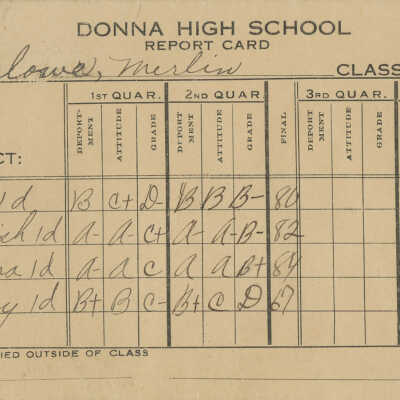 DONNA HIGH SCHOOL
REPORT CARD
lowe, Merlin CLASS
1ST QUAR. 2ND QUAR. 3RD QUAR.
DEPORT-MENT ATTITUDE GRADE DEPORT-MENT ATTITUDE GRADE FINAL DEPORT-MENT ATTITUDE GRADE
CT:
1d B C+ D- B B B- 80
ish 1d A- A- C+ A- A- B- 82
a 1d A- A C A A B+ 84
y 1d B+ B C- B+ C D 67
IED OUTSIDE OF CLASS